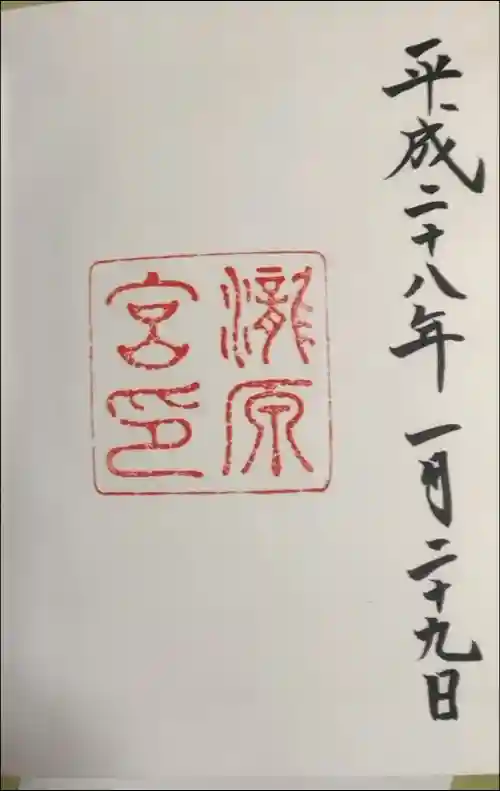 平成二十八年一月二十九日
瀧原
宮印